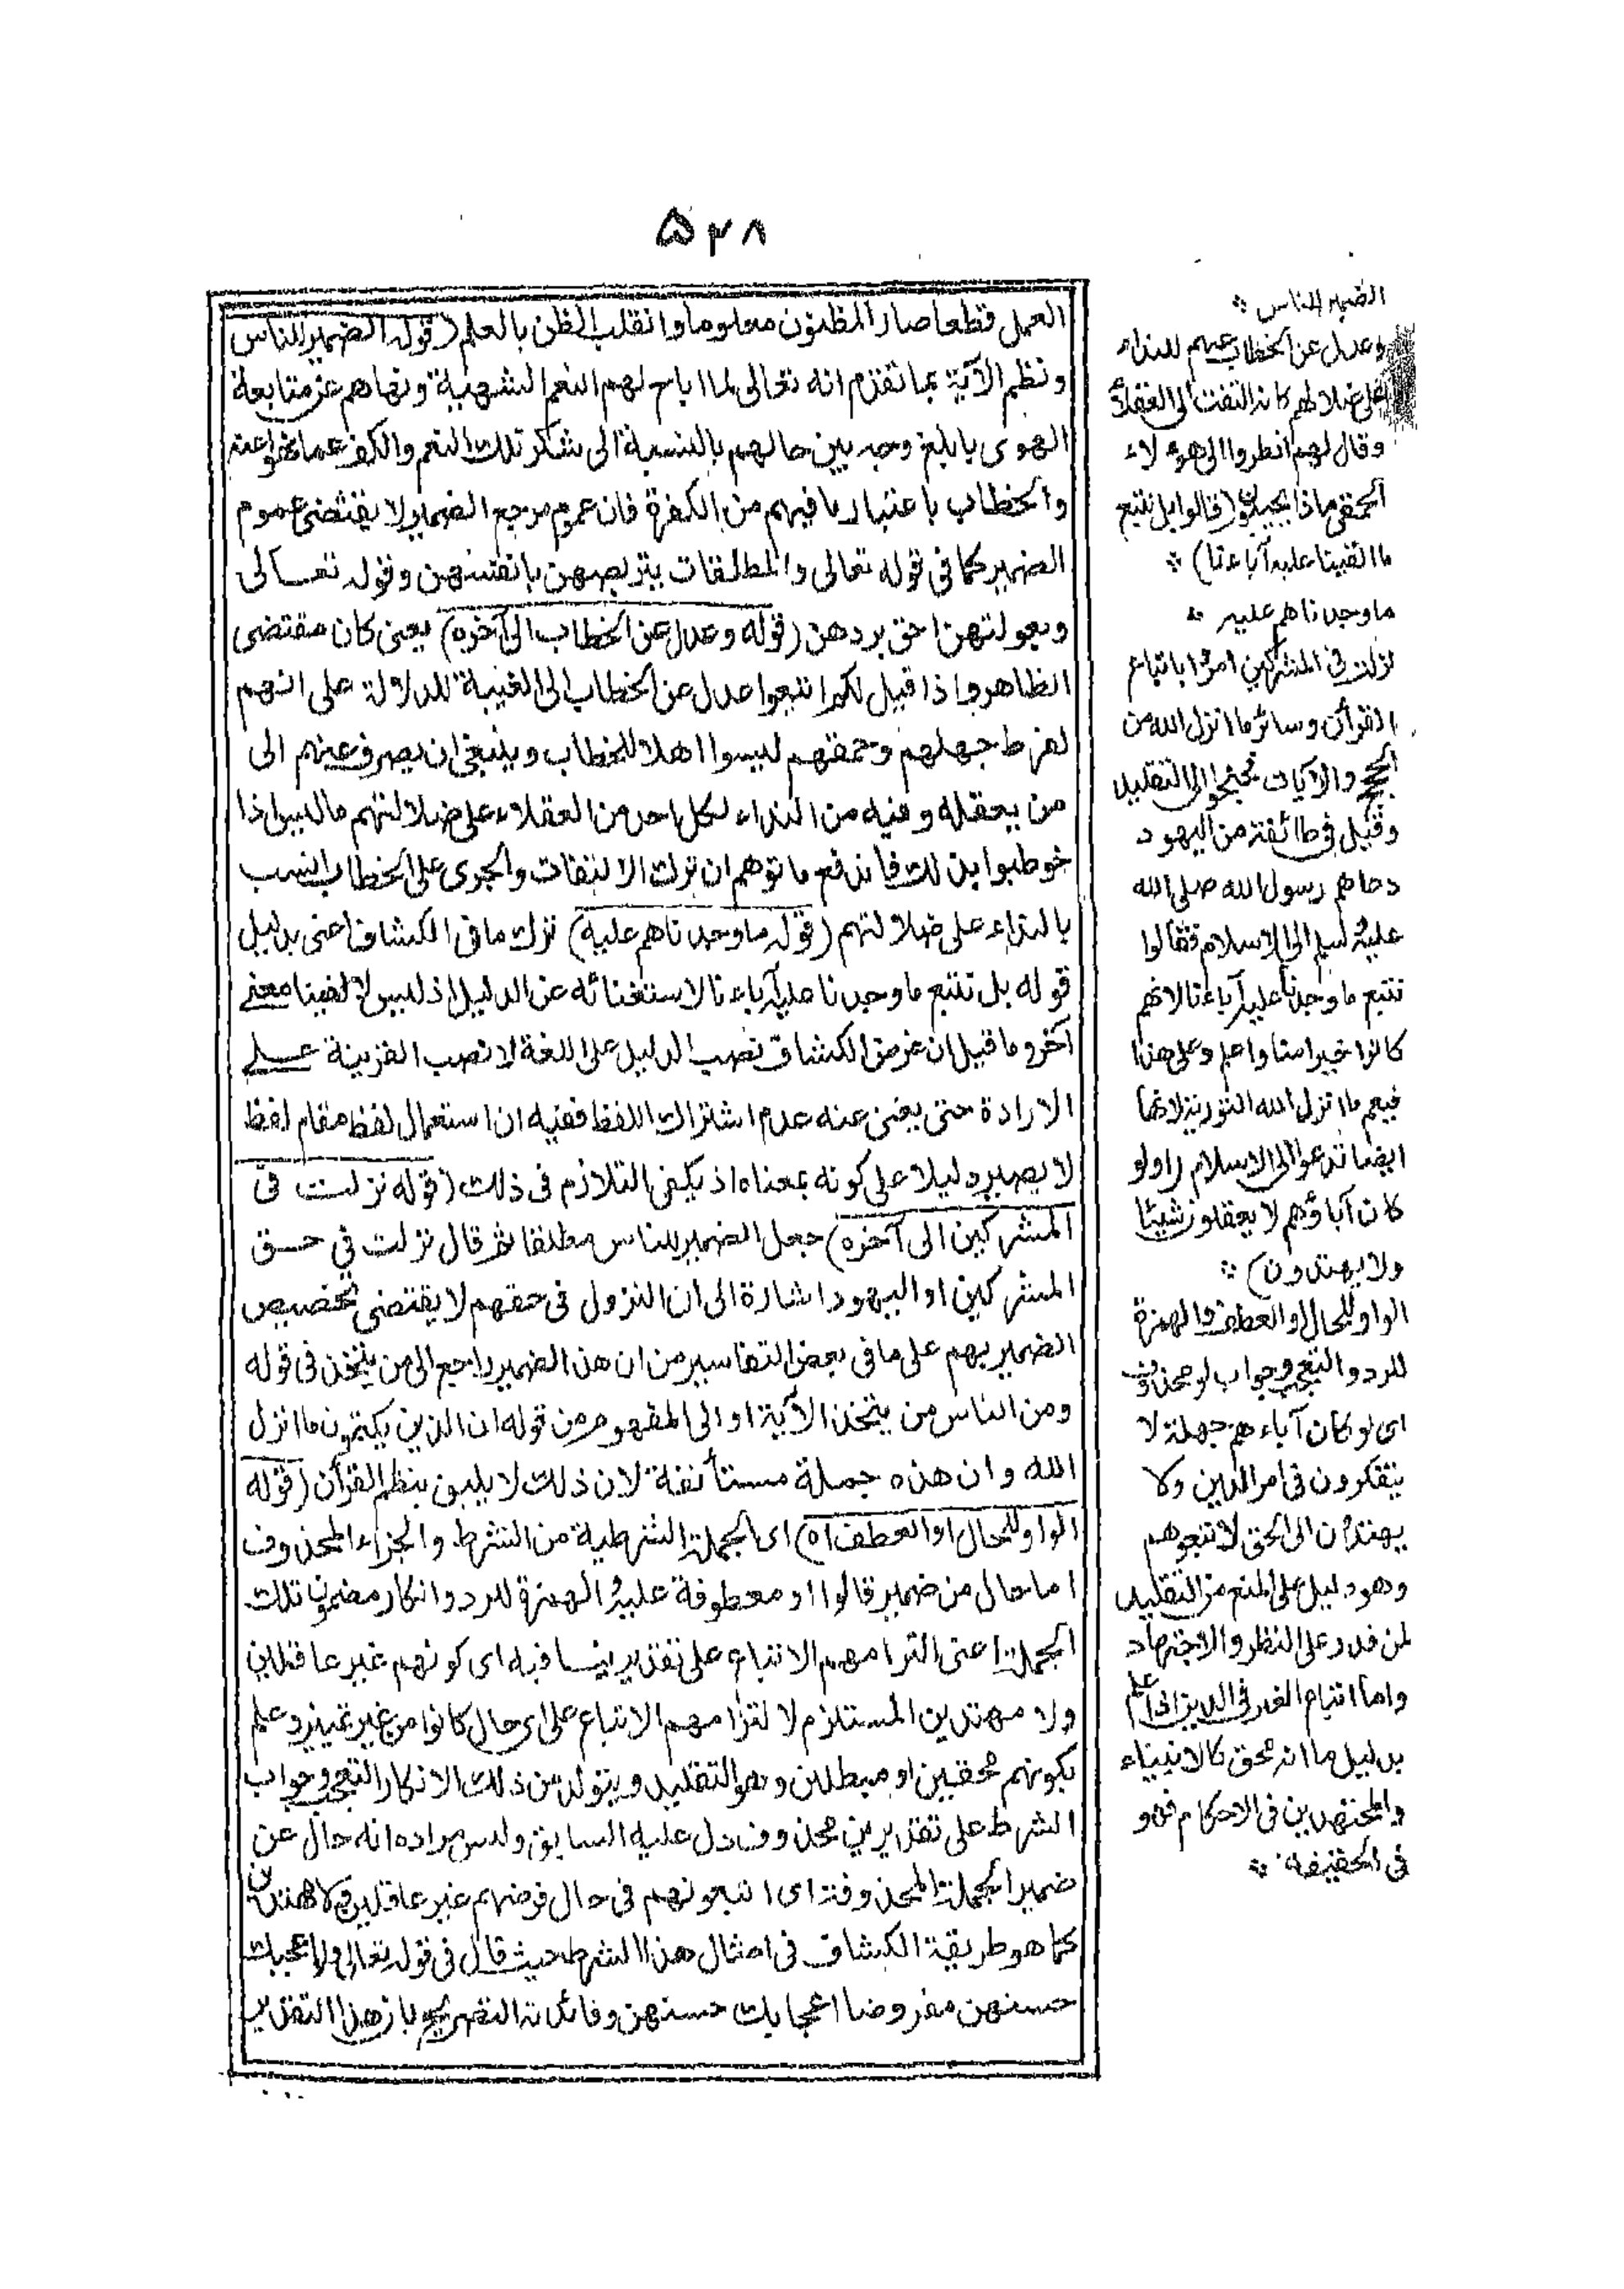 ۵۳۸
العمل قطعا صار المظنون معلوما وانقلب الظن بالعلم (قوله الضمير للناس
ونظم الآية بما تقدم انه تعالى لما اباح لهم النعم الشهية ونهاهم عن متابعة
الهوى بابلغ وجه بين حالهم بالنسبة الى شكر تلك النعم والكف عما نهوا عنه
والخطاب باعتبار ما فيهم من الكفرة فان عموم مرجع الضمير لا يقتضى عموم
الضمير كما فى قوله تعالى والمطلقات يتربصن بانفسهن وقوله تعالى
وبعولتهن احق بردهن (قوله وعدل عن الخطاب الى آخره) يعنى كان مقتضى
الظاهر واذا قيل لكم اتبعوا عدل عن الخطاب الى الغيبة للدلالة على انهم
لفرط جهلهم وحمقهم ليسوا اهلا للخطاب وينبغى ان يصرف عنهم الى
من يعقله وفيه من النداء لكل احد من العقلاء على ضلالتهم ما ليس اذا
خوطبوا بذلك فاندفع ما توهم ان ترك الالتفات والجرى على الخطاب انسب
بالنداء على ضلالتهم (قوله ما وجدناهم عليه) ترك ما فى الكشاف اعنى بدليل
قوله بل نتبع ما وجدنا عليه آباءنا لاستغنائه عن الدليل اذ ليس لالفينا معنى
آخر وما قيل ان غرض الكشاف نصب الدليل على اللغة لا نصب القرينة على
الارادة حتى يغنى عنه عدم اشتراك اللفظ ففيه ان استعمال لفظ مقام لفظ
لا يصير دليلا على كونه بمعناه اذ يكفى التلازم فى ذلك (قوله نزلت فى
المشركين الى آخره) جعل الضمير للناس مطلقا ثم قال نزلت في حق
المشركين او اليهود اشارة الى ان النزول فى حقهم لا يقتضى تخصيص
الضمير بهم على ما فى بعض التفاسير من ان هذا الضمير راجع الى من يتخذ فى قوله
ومن الناس من يتخذ الآية او الى المفهوم من قوله ان الذين يكتمون ما انزل
الله وان هذه جملة مستأنفة لان ذلك لا يليق بنظم القرآن (قوله
الواو للحال او العطف اه) اى الجملة الشرطية من الشرط والجزاء المحذوف
اما حال من ضمير قالوا او معطوفة عليه والهمزة للرد وانكار مضمون تلك
الجملة اعنى التزامهم الاتباع على تقدير ينافيه اى كونهم غير عاقلين
ولا مهتدين المستلزم لالتزامهم الاتباع على اى حال كانوا من غير تمييز وعلم
بكونهم محقين او مبطلين وهو التقليد ويتولد من ذلك الانكار التعجب وجواب
الشرط على تقديرين محذوف دل عليه السابق وليس مراده انه حال عن
ضمير الجملة المحذوفة اى اتتبعونهم فى حال فرضهم غير عاقلين ولا مهتدين
كما هو طريقة الكشاف فى امثال هذا الشرط حيث قال فى قوله تعالى ولو اعجبك
حسنهن مفروضا اعجابك حسنهن وفائدته التصريح بان هذا التقدير
الضمير للناس
وعدل عن الخطاب عنهم للنداء
على ضلالهم كانه التفت الى العقلاء
وقال لهم انظروا الى هؤلاء
الحمقى ماذا يجيبون (قالوا بل نتبع
ما الفينا عليه آباءنا)
ما وجدناهم عليه
نزلت فى المشركين امروا باتباع
القرآن وسائر ما انزل الله من
الحجج والآيات فجنحوا الى التقليد
وقيل فى طائفة من اليهود
دعاهم رسول الله صلى الله
عليه وسلم الى الاسلام فقالوا
نتبع ما وجدنا عليه آباءنا لانهم
كانوا خيرا منا واعلم وعلى هذا
فيعم ما انزل الله التورية لانها
ايضا تدعو الى الاسلام (اولو
كان آباؤهم لا يعقلون شيئا
ولا يهتدون)
الواو للحال او العطف والهمزة
للرد والتعجب وجواب لو محذوف
اى لو كان آباءهم جهلة لا
يتفكرون فى امر الدين ولا
يهتدون الى الحق لاتبعوهم
وهو دليل على المنع من التقليد
لمن قدر على النظر والاجتهاد
واما اتباع الغير فى الدين اذا علم
بدليل ما انه محق كالانبياء
والمجتهدين فى الاحكام فهو
فى الحقيقة